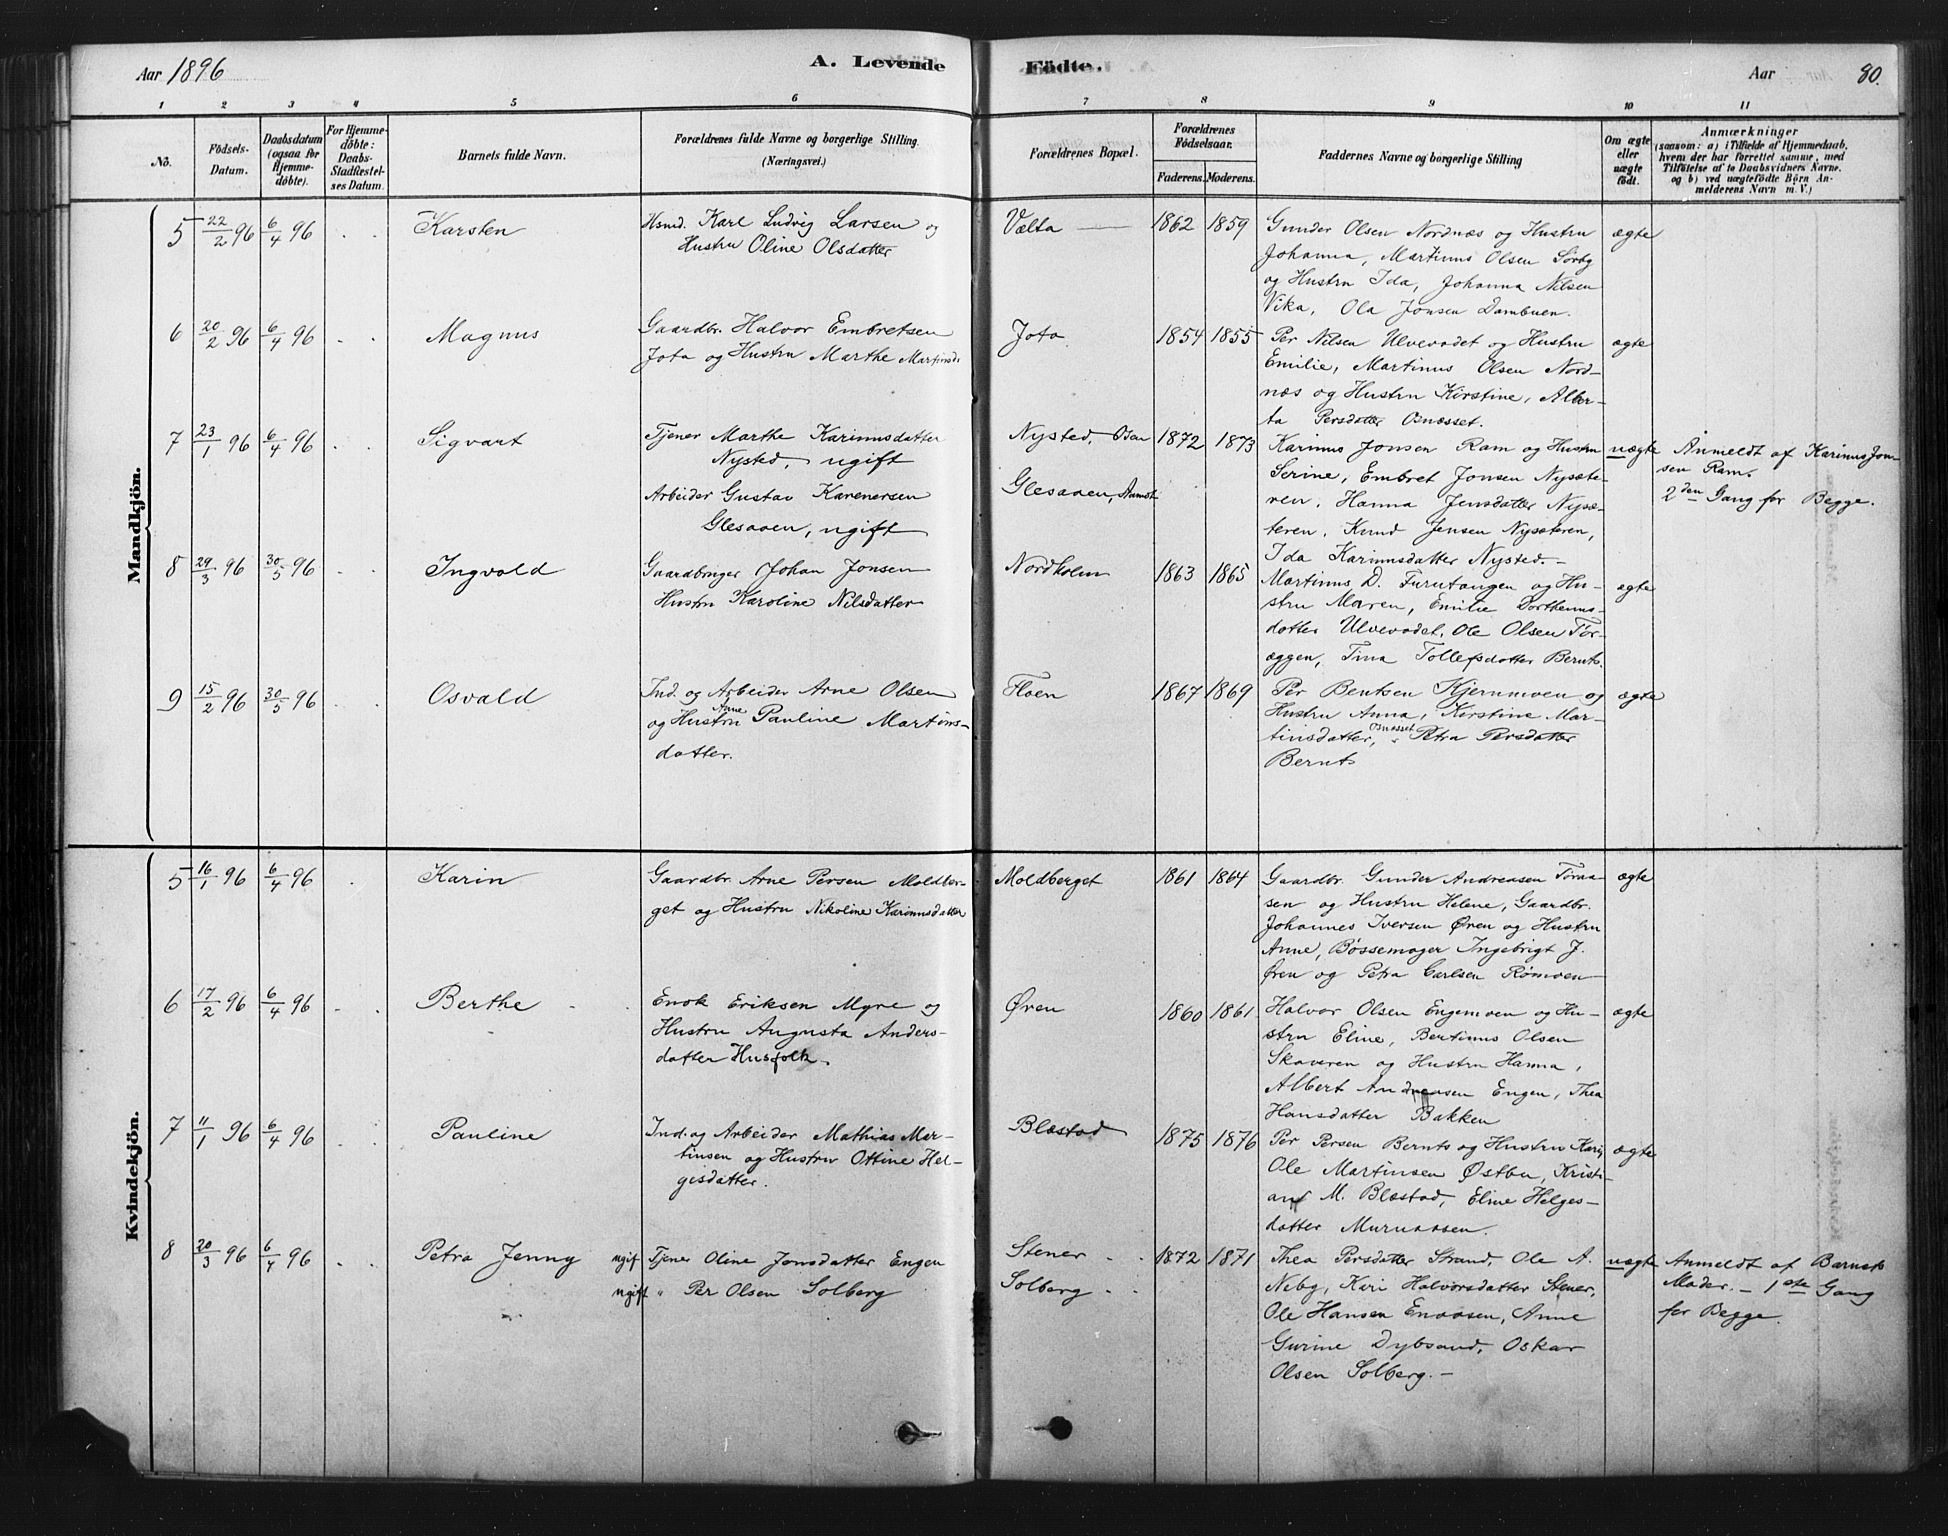 Aar 1896
A. Levende Födte.
Aar 80.
1 2 3 4 5 6 7 8 9 10 11
No.
Födsels-Datum.
Daabsdatum (ogsaa for Hjemme-döbte).
For Hjemme-döbte: Daabs-Stadfæstel-ses Datum.
Barnets fulde Navn.
Forældrenes fulde Navne og borgerlige Stilling. (Næringsvei.)
Forældrenes Bopæl.
Forældrenes Födselsaar.
Faderens. Moderens.
Faddernes Navne og borgerlige Stilling
Om ægte eller uægte födt.
Anmærkninger
(saasom: a) i Tilfælde af Hjemmedaab,
hvem der har forrettet samme, med
Tilföielse af to Daabsvidners Navne,
og b) ved uægtefödte Börn An-
melderens Navn m. V.)
Mandkjön.
5 22/2 96 6/4 96 Karsten
Hsmd. Karl Ludvig Larsen og
Hustru Oline Olsdatter
Vælta 1862 1859
Gunder Olsen Nordnæs og Hustru
Johanna, Martinus Olsen Sörby
og Hustru Ida, Johanna Nilsen
Vika, Ola Jonsen Dambuen.
ægte
6 20/2 96 6/4 96 Magnus
Gaardbr. Halvor Embretsen
Jota og Hustru Marthe Martinsd.
Jota 1854 1855
Per Nilsen Ulvevadet og Hustru
Emilie, Martinus Olsen Nord-
næs og Hustru Kirstine, Alber-
ta Persdatter Osnæsset.
ægte
7 23/1 96 6/4 96 Sigvart
Tjener Marthe Karinusdatter
Nysted, ugift
Arbeider Gustav Karenersen
Glesaaen, ugift
Nysted, Osen 1872 1873
Glesaaen, Aamot
Karinus Jonsen Ram og Hustru
Serine, Embret Jonsen Nysæte-
ren, Hanna Jensdatter Nysæ-
teren, Knud Jensen Nysæteren,
Ida Karinusdatter Nysted. -
uægte
Anmeldt af Karinus Jon-
sen Ram.
2den Gang for Begge.
8 29/3 96 30/5 96 Ingvald
Gaardbruger Johan Jonsen
Hustru Karoline Nilsdatter
Nordholm 1863 1865
Martinus D. Furutangen og Hu-
stru Maren, Emilie Dortheus-
datter Ulvevadet, Ole Olsen Tör-
æggen, Tina Tollefsdatter Bernts.
ægte
9 15/2 96 30/5 96 Osvald
Ind. og Arbeider Arne Olsen
og Hustru Anne Pauline Martins-
datter.
Floen 1867 1869
Per Bentsen Kjernmoen og
Hustru Anna, Kirstine Mar-
tinsdatter, Osnæsset Petra Persdatter
Bernts
ægte
Kvindekjön.
5 16/1 96 6/4 96 Karin
Gaardbr. Arne Persen Moldber-
get og Hustru Nikoline Karinusdatter
Moldberget 1861 1864
Gaardbr. Gunder Andreasen Töraa-
sen og Hustru Helene, Gaardbr.
Johannes Iversen Øren og Hustru
Anne, Bössemager Ingebrigt J.
Øren og Petra Carlsen Römoen
ægte
6 17/2 96 6/4 96 Berthe
Enok Eriksen Myre og
Hustru Augusta Anders-
datter Husfolk.
Øren 1860 1861
Halvor Olsen Engemoen og Hu-
stru Eline, Bertinus Olsen
Skaaren og Hustru Hanna,
Albert Andreasen Engen, Thea
Hansdatter Bakken
ægte
7 11/1 96 6/4 96 Pauline
Ind. og Arbeider Mathias Mar-
tinsen og Hustru Ottine Hel-
gisdatter.
Blæstad 1875 1876
Per Persen Bernts og Hustru Kari,
Ole Martinsen Østby, Kristi-
an M. Blæstad, Eline Helges-
datter Muruaasen.
ægte
8 20/3 96 6/4 96 Petra Jenny
ugift Tjener Oline Jonsdatter Engen
ugift " Per Olsen Solberg
Stener 1872 1871
Solberg
Thea Persdatter Strand, Ole A.
Neby, Kari Halvorsdatter Stener,
Ole Hansen Enaasen, Anne
Gurine Dybsand, Oskar
Olsen Solberg. -
uægte
Anmeldt af Barnets
Moder. - 1ste Gang
for Begge.